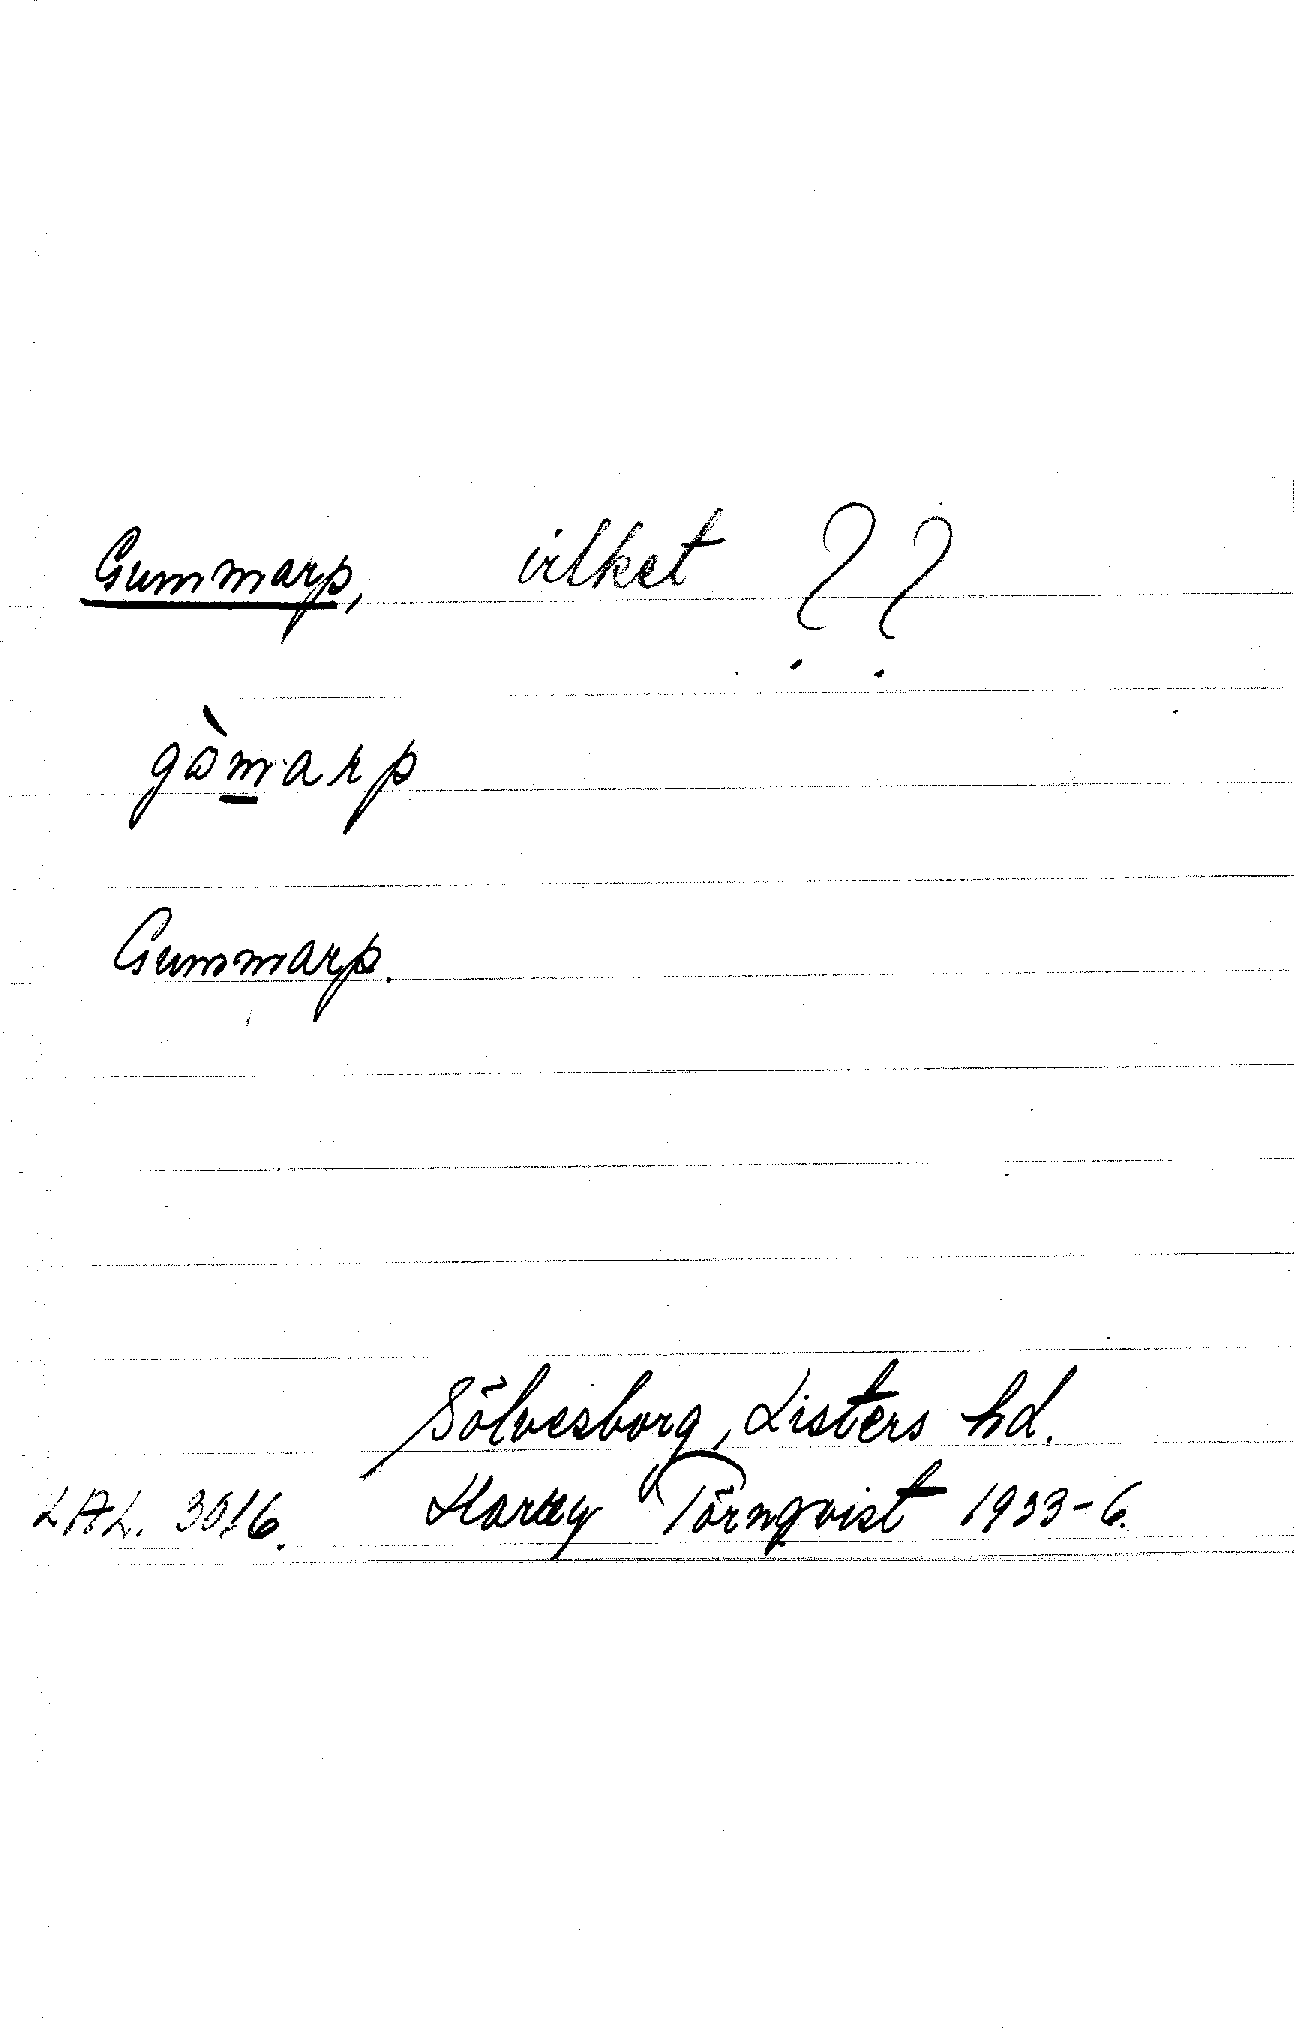 Gummarp, vilket ??
gòm̲arp
Gummarp.
Sölvesborg, Listers hd.
LAL. 3016. Harry Törnqvist 1933-6.